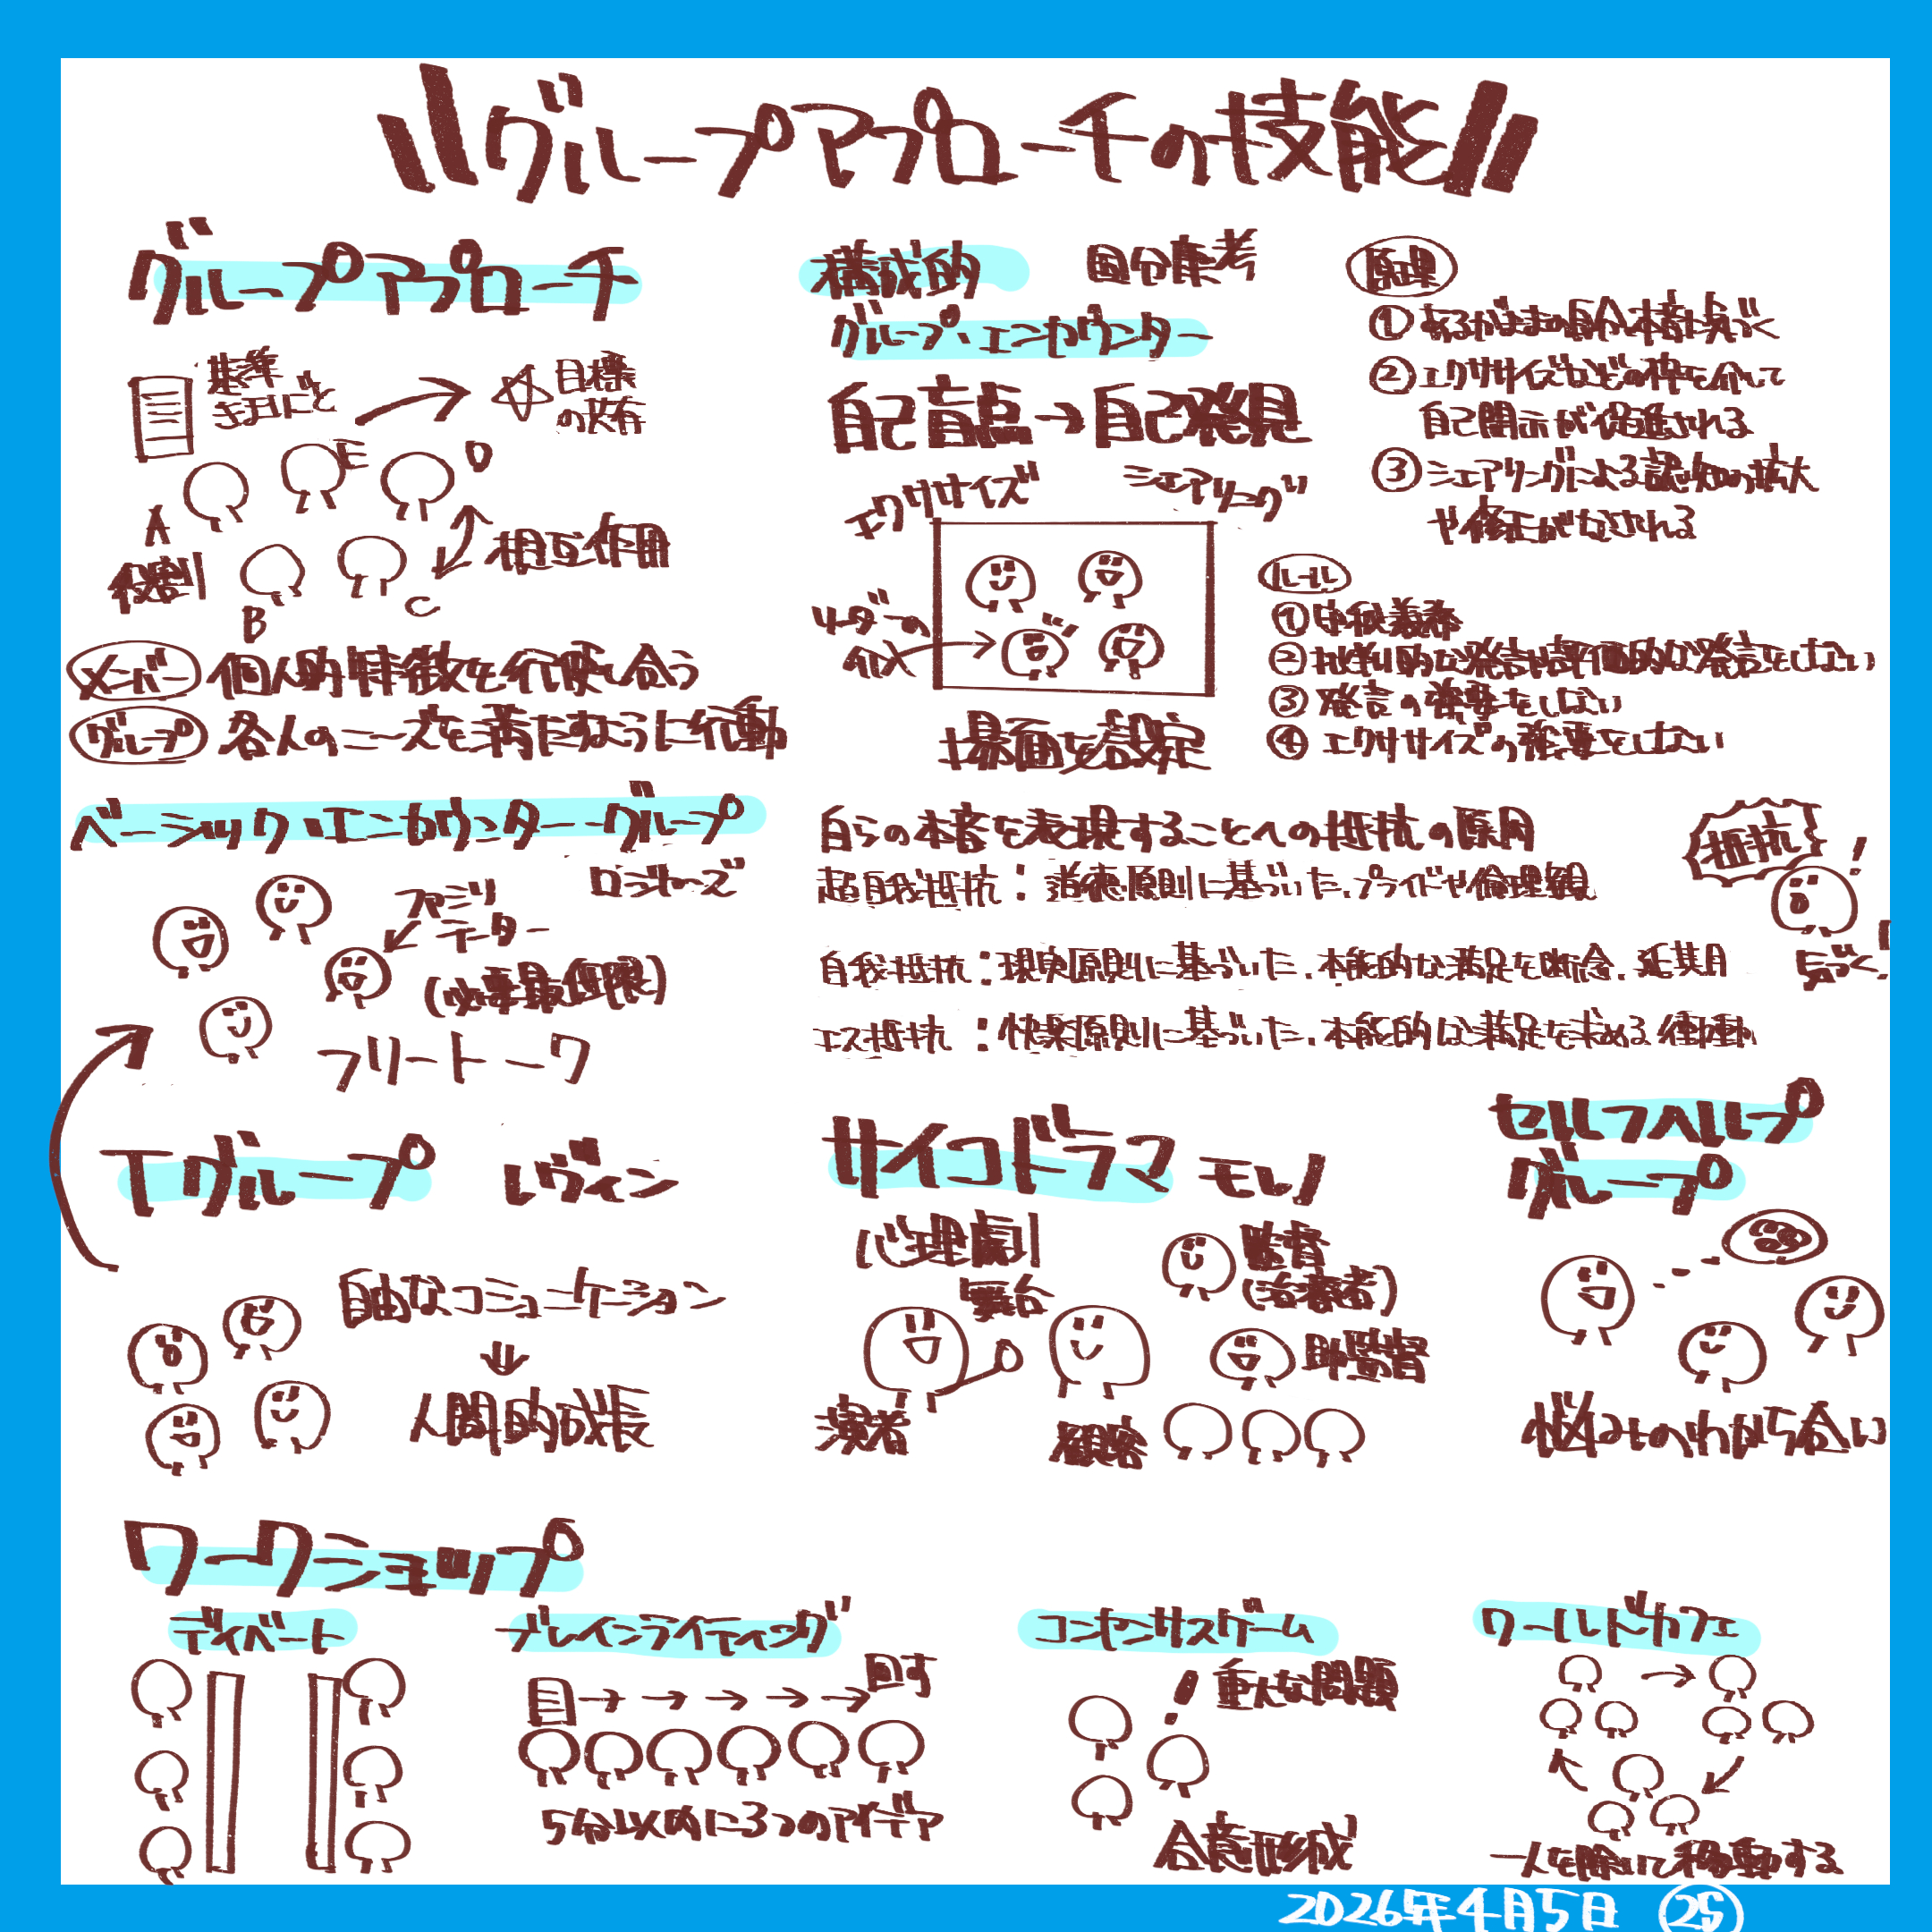 グループアプローチの技能
グループアプローチ
基準
きまりごと
目標
の共有
A
B
C
D
E
役割
相互作用
メンバー 個人的特徴を行使し合う
グループ 各人のニーズを満たすように行動
ベーシック・エンカウンター・グループ
ロジャーズ
ファシリ
テーター
(必要最低限)
フリートーク
Tグループ レヴィン
自由なコミュニケーション
人間的成長
構成的 國分康孝
グループ・エンカウンター
自己盲点→自己発見
エクササイズ シェアリング
リーダーの
介入
場面を設定
原理
① あるがままの自分
② エクササイズなどの枠を介して
自己開示が促進される
③ シェアリングによる認知の拡大
や修正がなされる
ルール
① 守秘義務
② 批判的な発言や評価的な発言をしない
③ 発言の強要をしない
④ エクササイズの強要をしない
自らの本音を表現することへの抵抗の原因
超自我抵抗:道徳原則に基づいた、プライドや倫理観
自我抵抗:現実原則に基づいた、本能的な満足を断念、延期
エス抵抗:快楽原則に基づいた、本能的な満足を求める衝動
抵抗
!
気づく!
サイコドラマ モレノ
心理劇
舞台
監督
(治療者)
助監督
演者
観客
セルフヘルプ
グループ
悩みのわかち合い
ワークショップ
ディベート
ブレインライティング
回す
5分以内に3つのアイデア
コンセンサスゲーム
!重大な問題
合意形成
ワールドカフェ
一人を除いて移動する
2026年4月5日 25